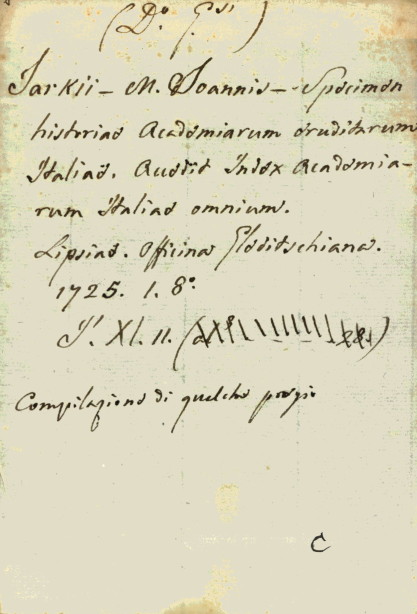 (D.° G.si)
Jarkii - M. Joannis - Specimen
historiae Academiarum eruditarum
Italiae. Accedit Index Academia-
rum Italiae omnium.
Lipsiae. Officina Gleditschiana.
1725. 1. 8.°
XI. 11.
Compilazione di qualche pregio
C